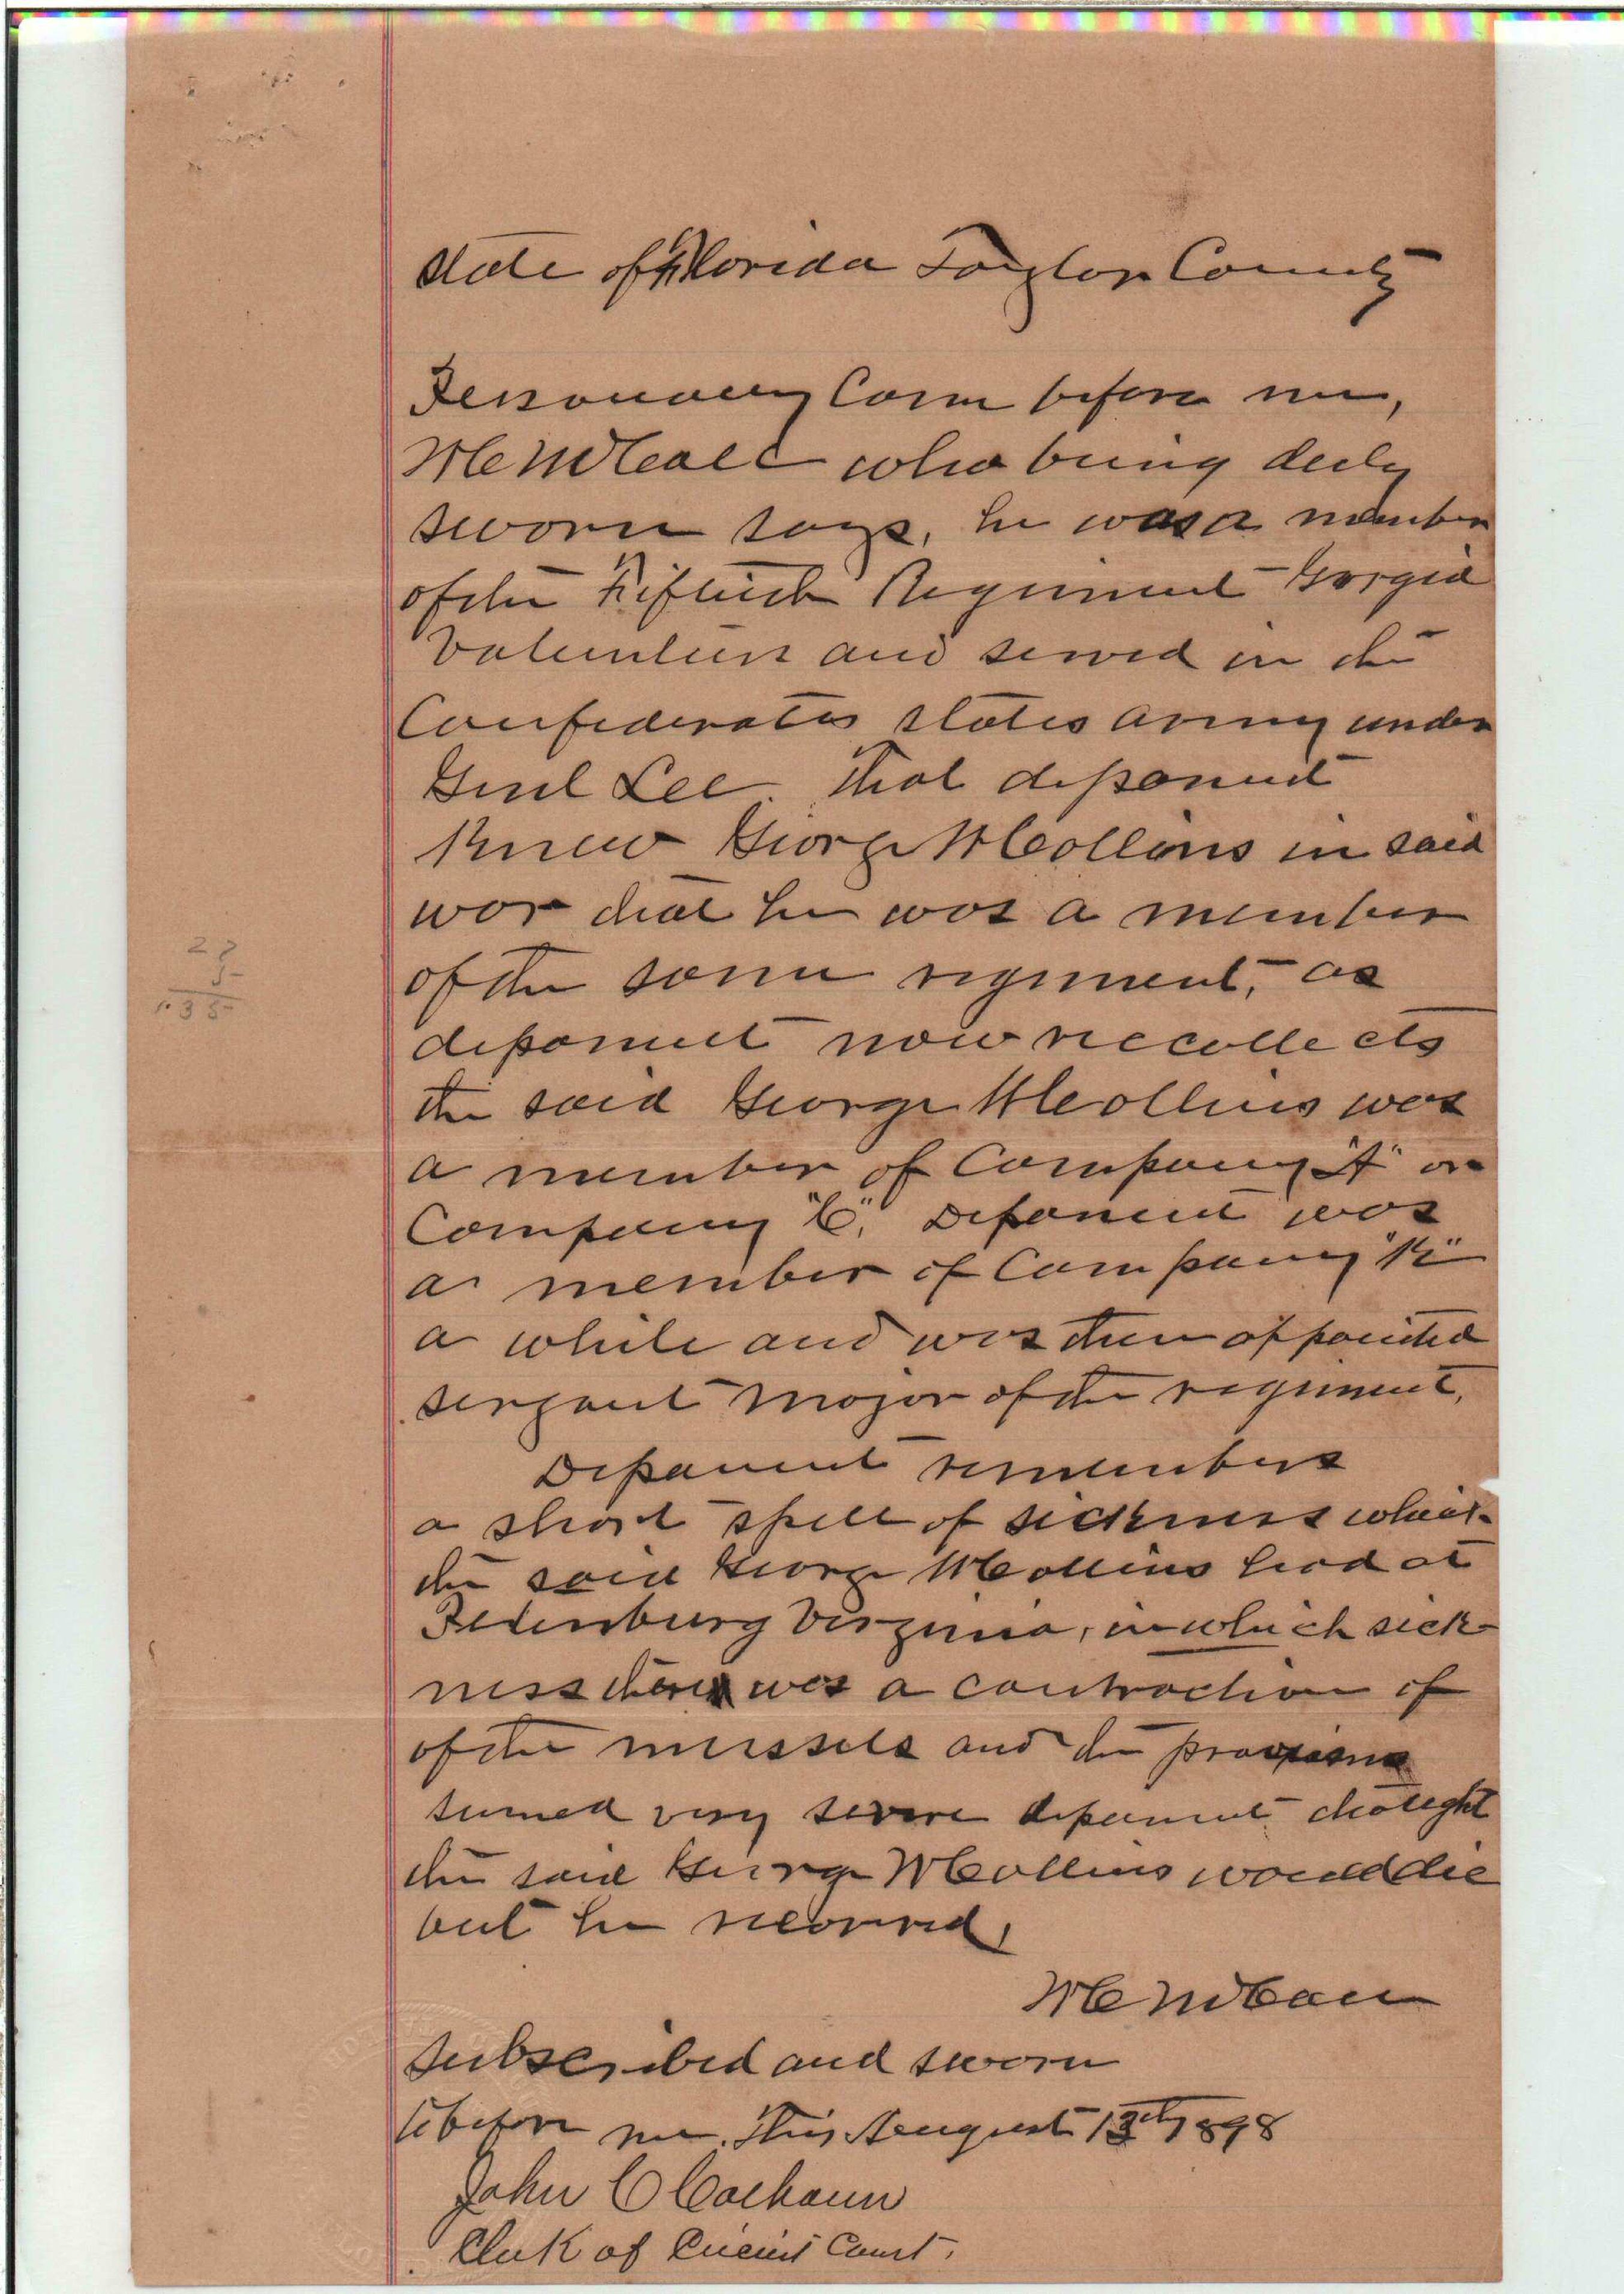 State of Florida Taylor County
Personally Came before me,
who being duly
sworn says, he was a member
of the Fiftieth Regiment Georgia
Volunteers and served in the
Confederates states army under
Genl Lee. That deponent
Knew George W Collins in said
war that he was a member
of the same regiment, as
deponent now recollects
the said George W Collins was
a member of Company "A" or
Company "C". Deponent was
a member of Company "K"
a while and was then appointed
sergant major of the regiment.
Deponent remembers
a short spell of sickness which
the said George W Collins had at
Petersburg Virginia, in which sick-
ness there was a contraction of
of the mussels and the
seemed very severe deponent thought
the said George W Collins would die
but he recovred,
Subscribed and sworn
to before me. This August 13th 1898
John C Calhoun
Clerk of Circuit Court.